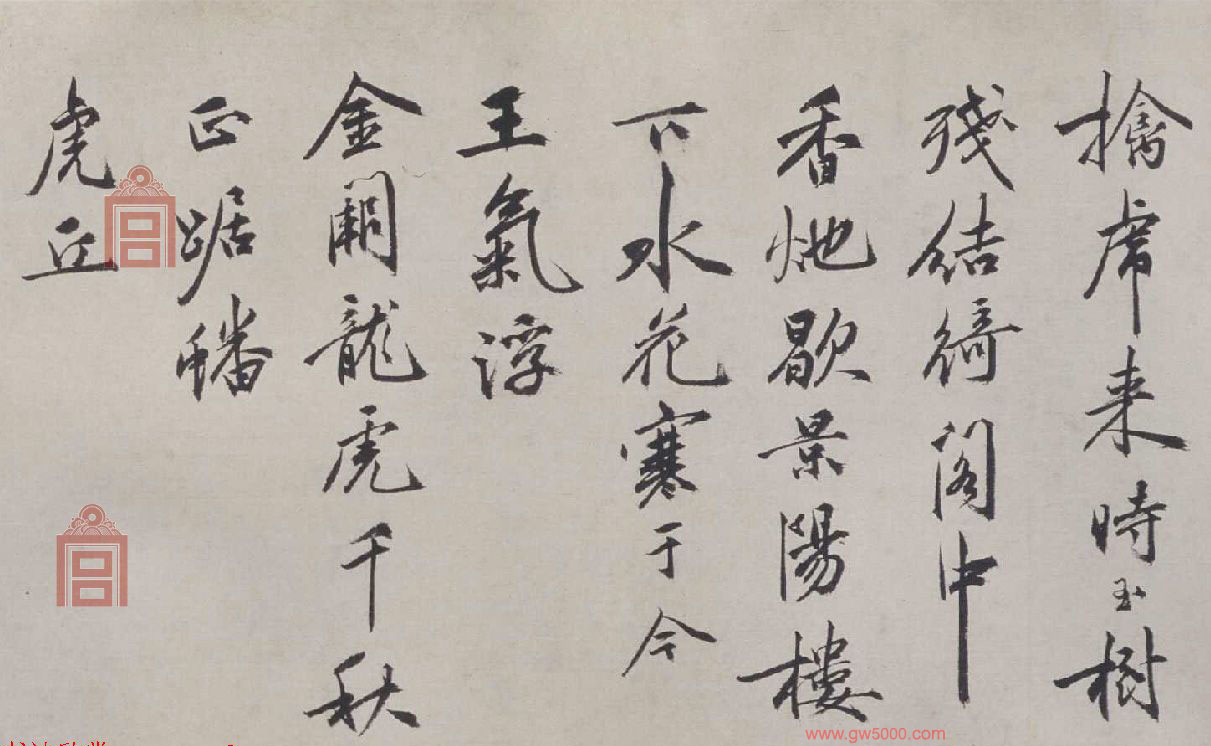 擒虎来時玉樹
殘結綺閣中
香灺歇景陽樓
下水花寒于今
王氣浮
金闕龍虎千秋
正踞蟠
虎丘
www.gw5000.com